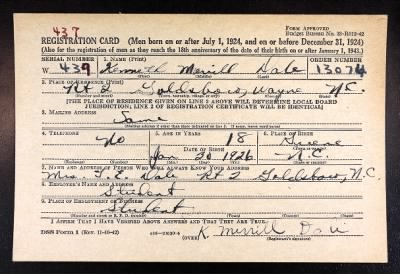 437
Form Approved
Budget Bureau No. 33-R012-42
REGISTRATION CARD—(Men born on or after July 1, 1924, and on or before December 31, 1924)
(Also for the registration of men as they reach the 18th anniversary of the date of their birth on or after January 1, 1943.)
SERIAL NUMBER 1. NAME (Print) ORDER NUMBER
W 439 Kenneth Merrill Dale 13074
2. PLACE OF RESIDENCE (Print)
Rt 2 Goldsboro, Wayne N.C.
[THE PLACE OF RESIDENCE GIVEN ON LINE 2 ABOVE WILL DETERMINE LOCAL BOARD
JURISDICTION; LINE 2 OF REGISTRATION CERTIFICATE WILL BE IDENTICAL]
3. MAILING ADDRESS
Same
4. TELEPHONE 5. AGE IN YEARS 6. PLACE OF BIRTH
No 18
DATE OF BIRTH
Jan. 1926 N.C.
7. NAME AND ADDRESS OF PERSON WHO WILL ALWAYS KNOW YOUR ADDRESS
Mrs. Dale Rt 2 Goldsboro, N.C.
8. EMPLOYER'S NAME AND ADDRESS
Student
9. PLACE OF EMPLOYMENT OR BUSINESS
Student
I AFFIRM THAT I HAVE VERIFIED ABOVE ANSWERS AND THAT THEY ARE TRUE.
DSS FORM 1 (Rev. 11-16-42) (OVER) K. Merrill Dale
(Registrant's signature)